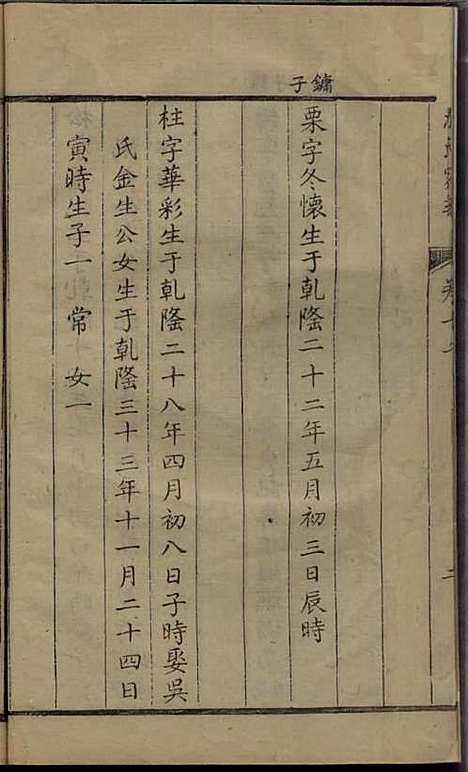 鏞子
栗字冬懷生于乾隆二十二年五月初三日辰時
柱字華彩生于乾隆二十八年四月初八日子時娶吳
氏金生公女生于乾隆三十三年十一月二十四日
寅時生子一 常 女一